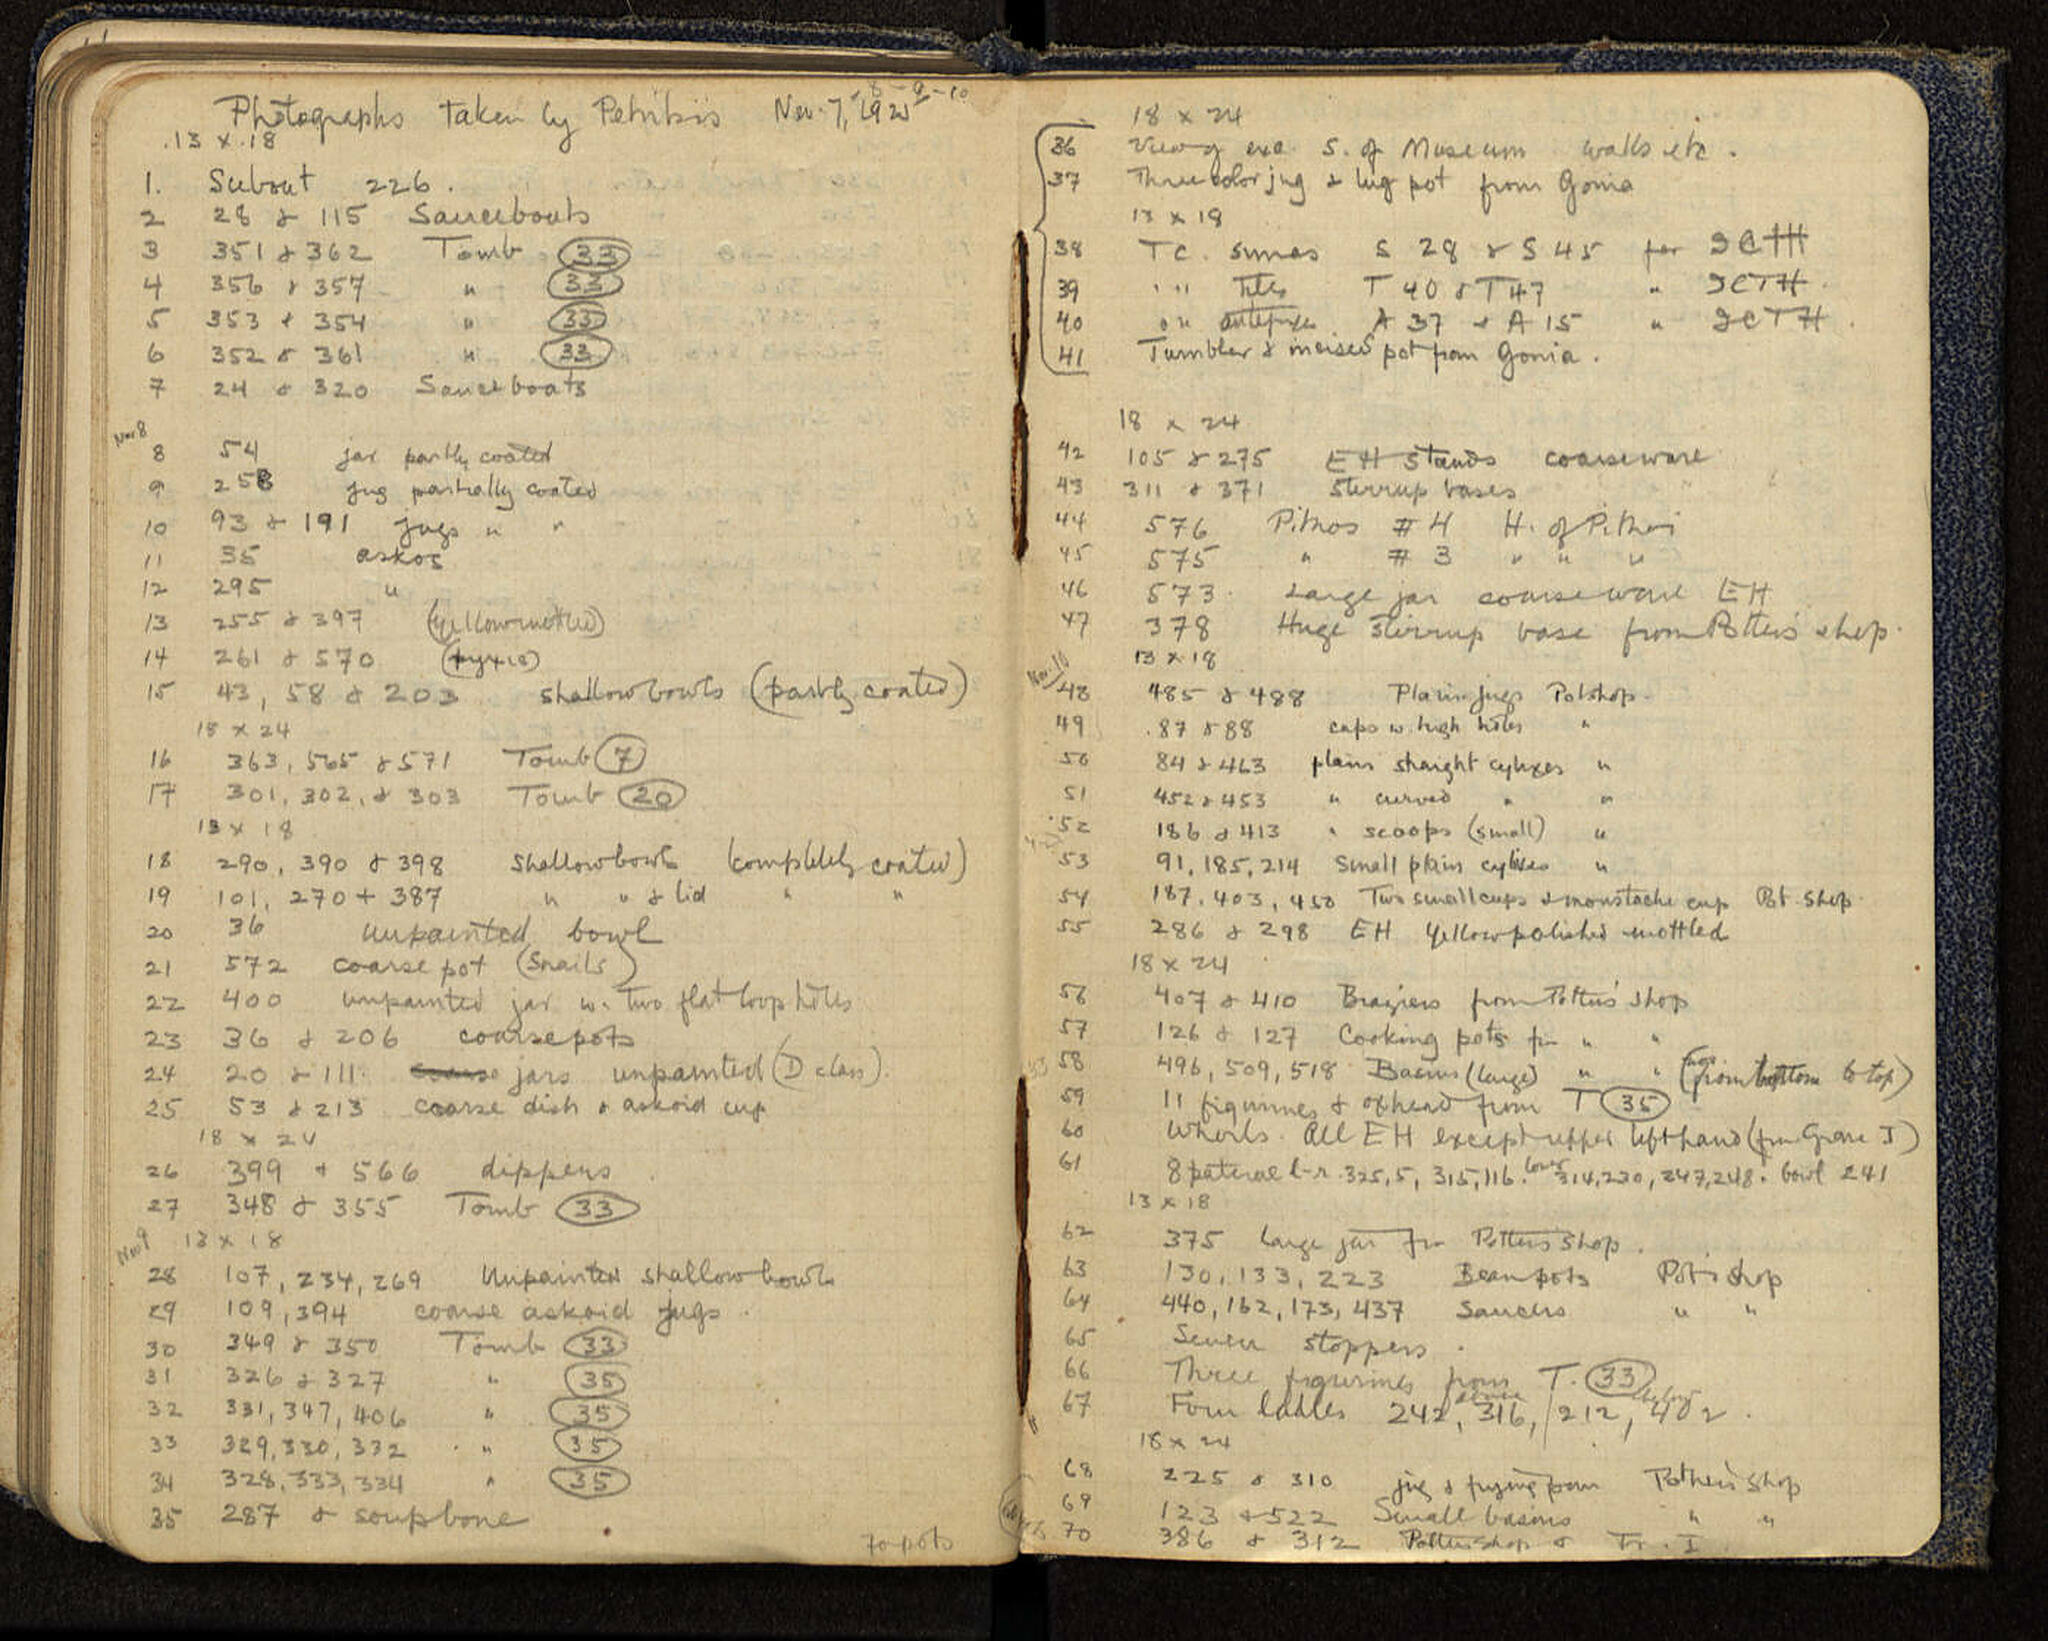 Photographs taken by Petritsis Nov. 7, -8-9-10 1921
13 x 18
1. Subout 226.
2 28 & 115 Sauceboats
3 351 & 362 Tomb 33
4 356 & 357 " 33
5 353 & 354 " 33
6 352 & 361 " 33
7 24 & 320 Sauceboats
Nov 8
8 54 jar partly coated
9 258 jug partially coated
10 93 & 191 jugs " "
11 35 askos
12 295 "
13 255 & 397 (yellow mottled)
14 261 & 570 (pyxis)
15 43, 58 & 203 shallow bowls (partly coated)
18 x 24
16 363, 565 & 571 Tomb 7
17 301, 302, & 303 Tomb 20
13 x 18
18 290, 390 & 398 shallow bowls (completely coated)
19 101, 270 + 387 " " & lid " "
20 36 unpainted bowl
21 572 coarse pot (Snails)
22 400 unpainted jar w. two flat loop hdles
23 36 & 206 coarse pots
24 20 & 111. coarse jars unpainted (D class).
25 53 & 213 coarse dish & askoid cup
18 x 24
26 399 & 566 dippers
27 348 & 355 Tomb 33
Nov 9 13 x 18
28 107, 234, 269 Unpainted shallow bowls
29 109, 394 coarse askoid jugs.
30 349 & 350 Tomb 33
31 326 & 327 " 35
32 331, 347, 406 " 35
33 329, 330, 332 " 35
34 328, 333, 334 " 35
35 287 & soupbone
70 pots
18 x 24
36 View of exc. S. of Museum walls etc.
37 Three color jug & lug pot from Gonia
13 x 18
38 TC. simas S 28 & S 45 for ICTH
39 " " tiles T 40 & T 47 " ICTH.
40 " " antefixes A 37 & A 15 " ICTH.
41 Tumbler & incised pot from Gonia.
18 x 24
42 105 & 275 EH stands coarseware
43 311 & 371 stirrup bases
44 576 Pithos # 4 H. of Pithoi
45 575 " # 3 " " "
46 573. Large jar coarseware EH
47 378 Huge stirrup base from Potter's shop.
13 x 18
Nov 10
48 485 & 488 Plain jugs Potshop.
49 87 & 88 cups w. high hdles "
50 84 & 463 plain straight cylixes "
51 452 & 453 " curved " "
52 186 & 413 " scoops (small) "
53 91, 185, 214 small plain cylixes "
54 187, 403, 450 Two small cups & moustache cup Pot. shop.
55 286 & 298 EH Yellow polished mottled
18 x 24
56 407 & 410 Braziers from Potters' shop
57 126 & 127 Cooking pots fr " "
58 496, 509, 518 Basins (large) " " (from bottom to top)
59 11 figurines & oxhead from T 35
60 Whorls. All EH except upper left hand (from Grave I)
61 8 paterae l-r. 325, 5, 315, 116. lower 314, 230, 247, 248. bowl 241
13 x 18
62 375 Large jar fr Potters shop.
63 130, 133, 223 Beanpots Pot's shop
64 440, 162, 173, 437 Saucers " "
65 Seven stoppers.
66 Three figurines from T. 33
67 Four ladles above 242, 316, / below 212, 402.
18 x 24
68 225 & 310 jug & frying pan Potter's shop
69 123 & 522 Small basins " "
70 386 & 312 Pottershop & Tr. I